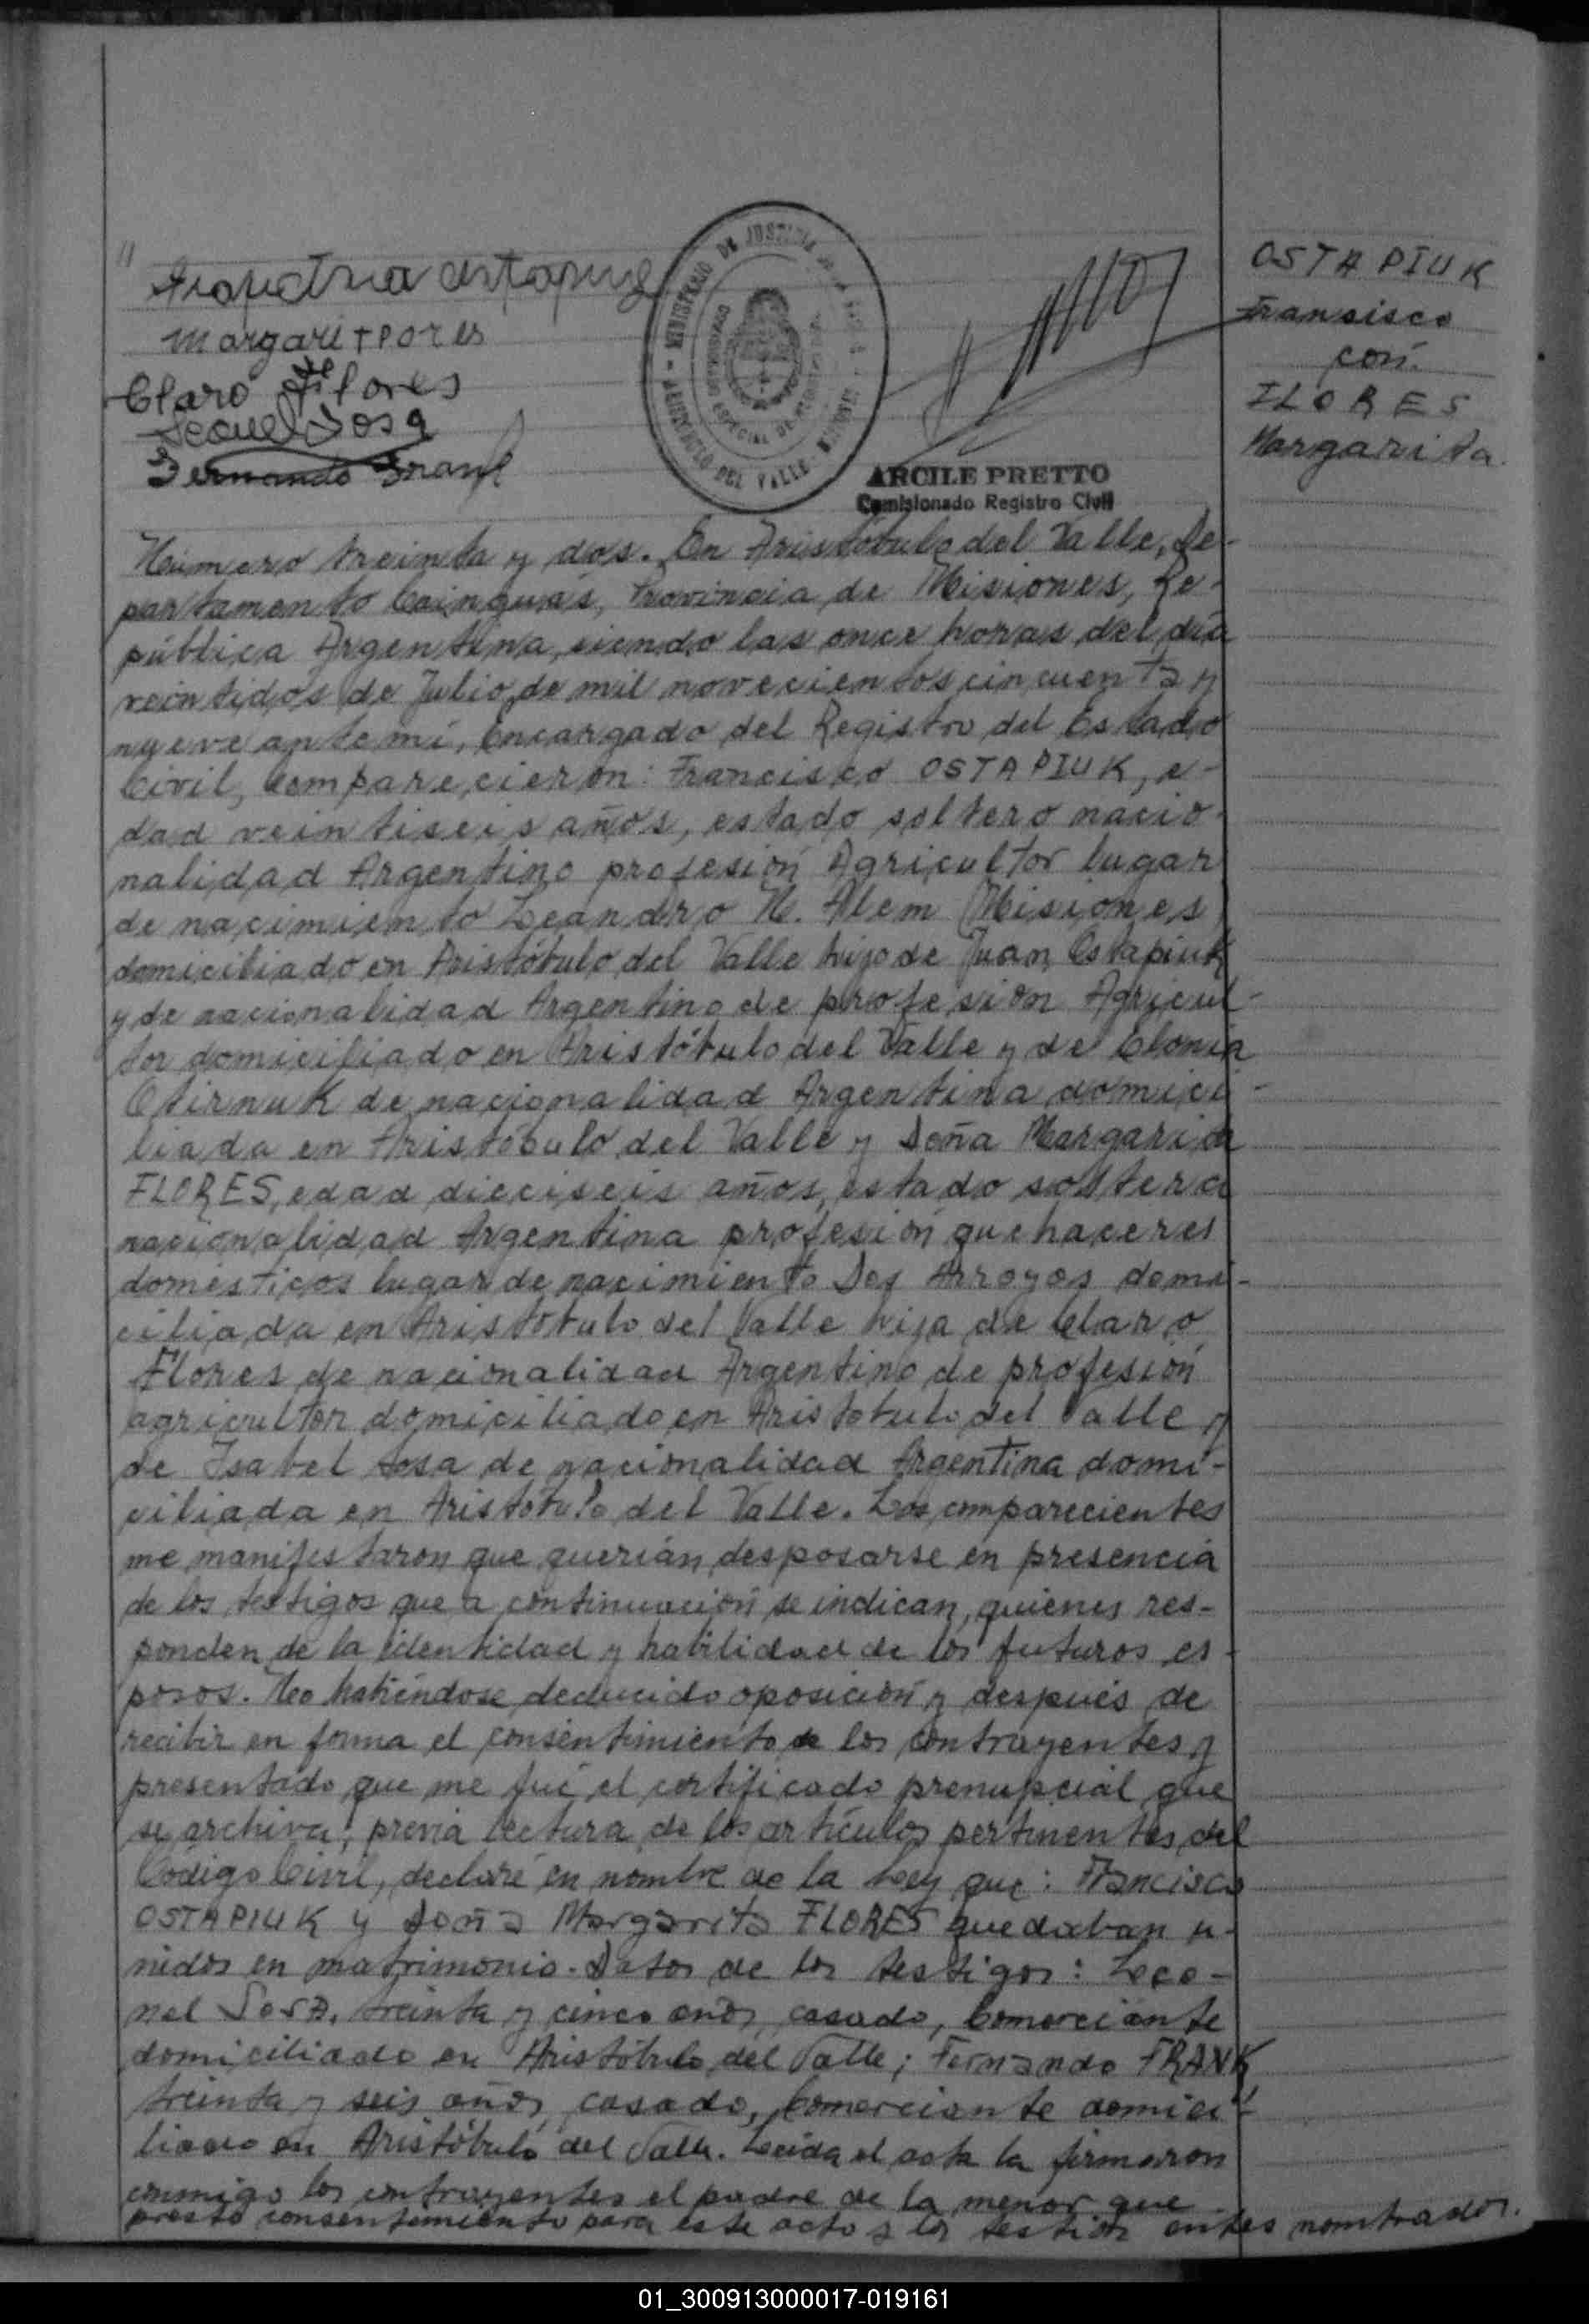 Margarit Flores
Claro Flores
Leonel Sosa
Fernando Frank
MINISTERIO DE JUSTICIA
ARISTOBULO DEL VALLE - MISIONES
ARCILE PRETTO
Comisionado Registro Civil
OSTAPIUK
Fransisco
con
FLORES
Margarita.
Número treinta y dos. En Aristóbulo del Valle, De-
partamento Cainguás, Provincia de Misiones, Re-
pública Argentina, siendo las once horas del día
veintidos de Julio de mil novecientos cincuenta y
nueve ante mí, Encargado del Registro del Estado
Civil, comparecieron: Francisco OSTAPIUK, e-
dad veintiseis años, estado soltero nacio-
nalidad Argentino profesión Agricultor lugar
de nacimiento Leandro N. Alem (Misiones)
domiciliado en Aristóbulo del Valle hijo de Juan Ostapiuk
y de nacionalidad Argentino de profesion Agricul-
tor domiciliado en Aristóbulo del Valle y de
de nacionalidad Argentina domici-
liada en Aristóbulo del Valle y Doña Margarita
FLORES, edad dieciseis años, estado soltera
nacionalidad Argentina profesión quehaceres
domésticos lugar de nacimiento Dos Arroyos domi-
ciliada en Aristóbulo del Valle hija de Claro
Flores de nacionalidad Argentino de profesión
agricultor domiciliado en Aristobulo del Valle y
de Isabel Sosa de nacionalidad Argentina domi-
ciliada en Aristobulo del Valle. Los comparecientes
me manifestaron que querían desposarse en presencia
de los testigos que a continuación se indican, quienes res-
ponden de la identidad y habilidad de los futuros es-
posos. No habiéndose deducido oposición y después de
recibir en forma el consentimiento de los contrayentes y
presentado que me fué el certificado prenupcial que
se archiva, previa lectura de los artículos pertinentes del
Código Civil, declaré en nombre de la Ley que: Francisco
OSTAPIUK y Doña Margarita FLORES quedaban u-
nidos en matrimonio. Datos de los testigos: Leo-
nel Sosa, treinta y cinco años, casado, Comerciante
domiciliado en Aristóbulo del Valle; Fernando FRANK
treinta y seis años, casado, Comerciante domici-
liado en Aristóbulo del Valle. Leída el acta la firmaron
conmigo los contrayentes el padre de la menor que
prestó consentimiento para este acto y los testigos antes nombrados.
01_300913000017-019161